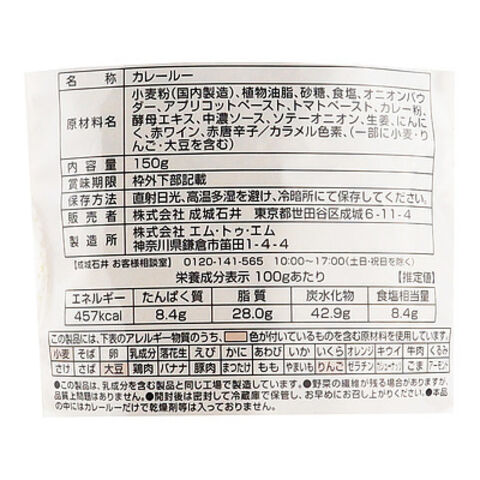 名 称 カレールー
原材料名 小麦粉(国内製造)、植物油脂、砂糖、食塩、オニオンパウ
ダー、アプリコットペースト、トマトペースト、カレー粉、
酵母エキス、中濃ソース、ソテーオニオン、生姜、にんに
く、赤ワイン、赤唐辛子/カラメル色素、(一部に小麦・り
んご・大豆を含む)
内 容 量 150g
賞味期限 枠外下部記載
保存方法 直射日光、高温多湿を避け、冷暗所にて保存してください。
販 売 者 株式会社 成城石井 東京都世田谷区成城6-11-4
製 造 所 株式会社 エム・トゥ・エム
神奈川県鎌倉市笛田1-4-4
【成城石井 お客様相談室】 0120-141-565 10:00～17:00(土日・祝日を除く)
栄養成分表示 100gあたり 【推定値】
エネルギー たんぱく質 脂 質 炭水化物 食塩相当量
457kcal 8.4g 28.0g 42.9g 8.4g
この製品には、下表のアレルギー物質のうち、 色が付いているものを含む原材料を使用しています。
小麦 そば 卵 乳成分 落花生 えび かに あわび いか いくら オレンジ キウイ 牛肉 くるみ
さけ さば 大豆 鶏肉 バナナ 豚肉 まつたけ もも やまいも りんご ゼラチン カシューナッツ ごま アーモンド
●この製品は、乳成分を含む製品と同じ工場で製造しています。●野菜の繊維が残る場合がありますが、
品質上問題はありません。●開封後は密封して冷蔵庫で保管し、お早めにお召し上がりください。●本品
の中にはカレールーだけで乾燥剤等は入っておりません。